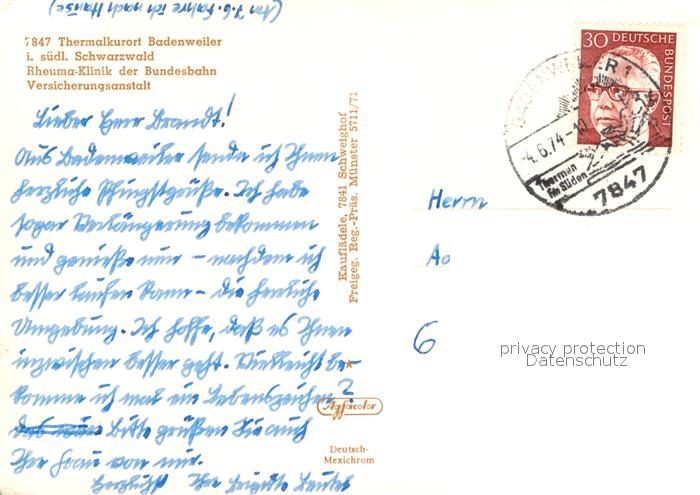 (Am 7.6. fahre ich nach Hause)
7847 Thermalkurort Badenweiler
i. südl. Schwarzwald
Rheuma-Klinik der Bundesbahn
Versicherungsanstalt
Lieber Herr Brandt!
Aus Badenweiler sende ich Ihnen
herzliche Pfingstgrüße. Ich habe
sogar Verlängerung bekommen
und genieße nun – nachdem ich
besser laufen kann – die herrliche
Umgebung. Ich hoffe, daß es Ihnen
inzwischen besser geht. Vielleicht be-
komme ich mal ein Lebenszeichen?
Bitte grüßen Sie auch
Ihre Frau von mir.
Herzlichst Ihre Brigitte Beutel
Kauflädele, 7841 Schweighof
Freigeg. Reg.-Präs. Münster 5711/71
Agfacolor
Deutsch-
Mexichrom
30 DEUTSCHE
BUNDESPOST
BADENWEILER 1
4.6.74-10
Thermen
im Süden
7847
Herrn
Ao
6
privacy protection
Datenschutz